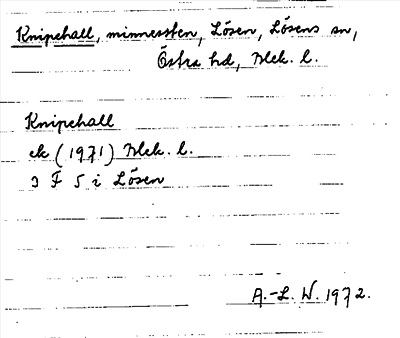 Knipehall, minnessten, Lösen, Lösens sn,
Östra hd, Blek. l.
Knipehall
ek (1971) Blek. l.
3 F 5 i Lösen
A.-L. W. 1972.